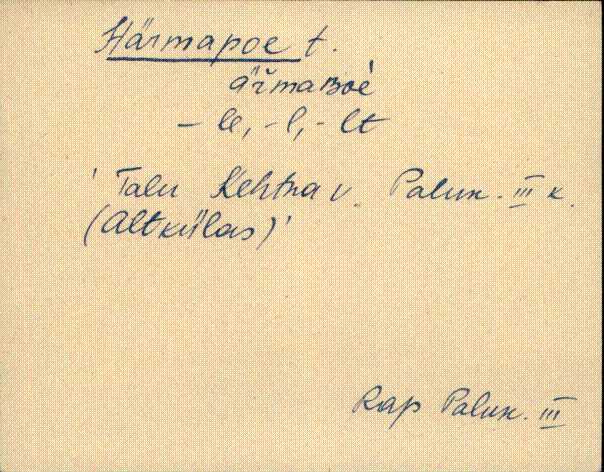 Härmapoe t.
äřmaʙoè
- le, - l, - lt
' Talu Kehtna v. Palun. III k.
(Altküllas)'
Rap Palun. III